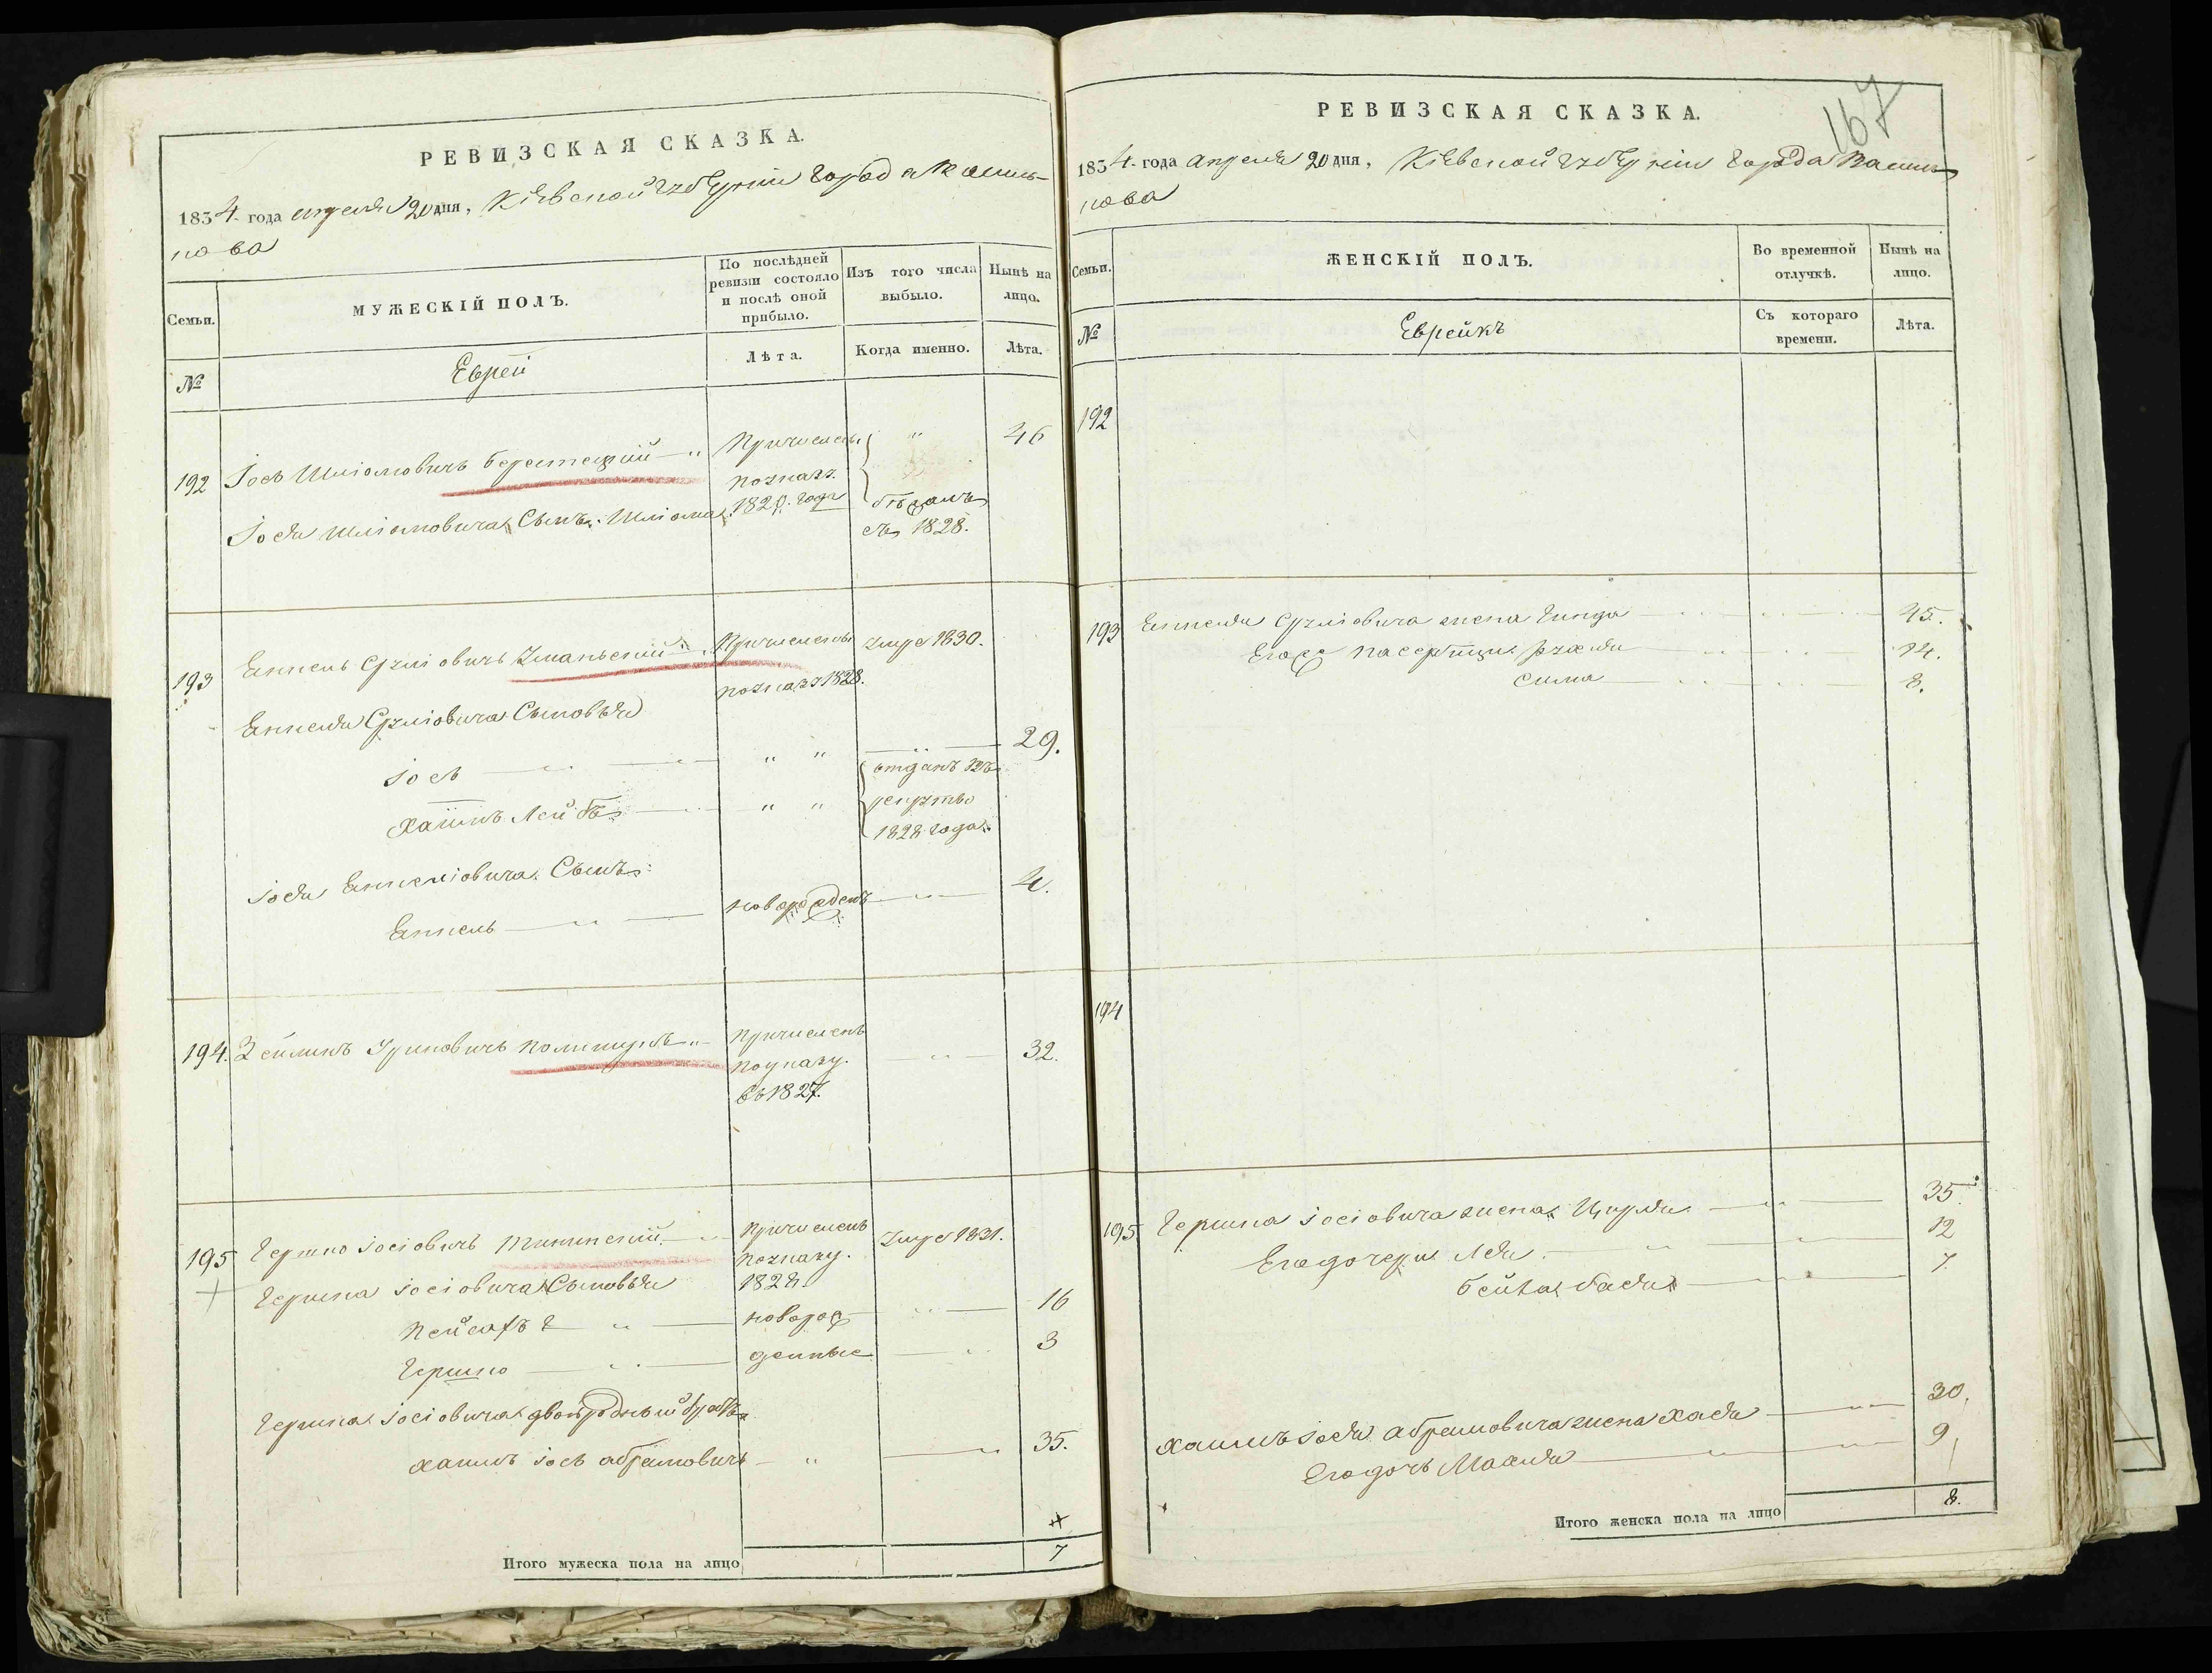 РЕВИЗСКАЯ СКАЗКА.
1834 года апреля 20 дня, Кіевской губерніи города Василь-
кова
Семьи.
МУЖЕСКІЙ ПОЛЪ.
По послѣдней ревизіи состояло и послѣ оной прибыло.
Изъ того числа выбыло.
Нынѣ на лицо.
№
Еврей
Лѣта.
Когда именно.
Лѣта.
192 Іось Шліомовичъ Берестецкій — " Причислены " 46
по указу
1820. года
Іося Шліомовича Сынъ: Шліома
съ 1828.
193 Еннель Срулiовичъ Уманьскій " Причислены умре 1830.
по указу 1828.
Еннеля Сруліовича Сыновья
Іось " " 29.
Хаимъ Лейбъ " " отданъ въ
рекрутво
1828 года
Іося Еннеліовича Сынъ:
Еннель новорожденъ 4.
194. Зейликъ Уриновичъ Полищукъ " Причисленъ " 32.
по указу.
въ 1827.
195 Гершко Іосіовичъ Причисленъ умре 1831.
по указу.
1828.
Гершка Іосіовича Сыновья
Пейсахъ новорож- 16
Гершко денные 3
Гершка Іосіовича двоюродный братъ
Хаимъ Іось Абрамовичъ " 35.
Итого мужеска пола на лицо 7
167
РЕВИЗСКАЯ СКАЗКА.
1834 года апреля 20 дня, Кіевской губерніи города Василь-
кова
Семьи.
ЖЕНСКІЙ ПОЛЪ.
Во временной отлучкѣ.
Нынѣ на лицо.
№
Еврейкъ
Съ котораго времени.
Лѣта.
192
193 Еннеля Сруліовича жена Гинда 45.
Егоже Рухля 14.
Сима 8.
194
195 Гершка Іосіовича жена Цирля 35.
Его дочери Лея 12
Бейла Бася 7
Хаимъ Іося Абрамовича жена Хая 30.
Его дочь Махля 9
Итого женска пола на лицо 8.